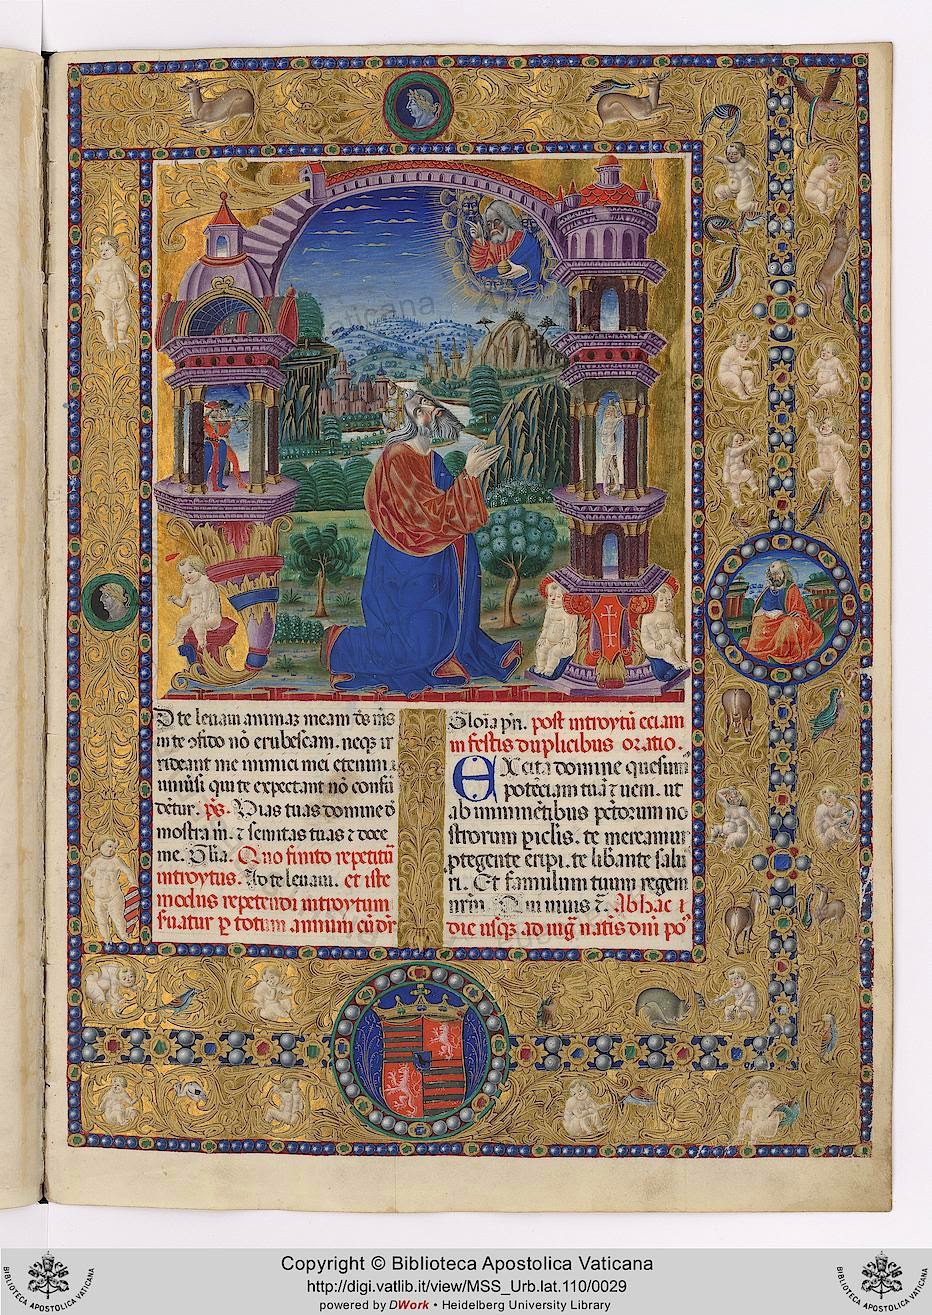 D te leuaui animaz meam deus ms
in te ɔfido nō erubescam. neqz ir
rideant me inimici mei etenim
uniuersi qui te expectant nō confū
dētur. ps. Vias tuas domine d
mostra m. ⁊ semitas tuas ⁊ doce
me. Gloria. Quo finito repetitur
introytus. Ad te leuaui. et iste
modus repetendi introytum
suatur p totum annum cū dr
Gloria pri. post introytū etiam
in festis duplicibus oratio.
EXcita domine quesum
potētiam tuā ⁊ ueni. ut
ab imminētibus petorum no
strorum piclis. te mereamur
ptegente eripi. te libante salu
ri. Et famulum tuum regem
nrm. Qui uiuis ⁊. Ab hac
die usqz ad uig natis dni po
Copyright © Biblioteca Apostolica Vaticana
http://digi.vatlib.it/view/MSS_Urb.lat.110/0029
powered by DWork • Heidelberg University Library
BIBLIOTECA APOSTOLICA VATICANA
BIBLIOTECA APOSTOLICA VATICANA